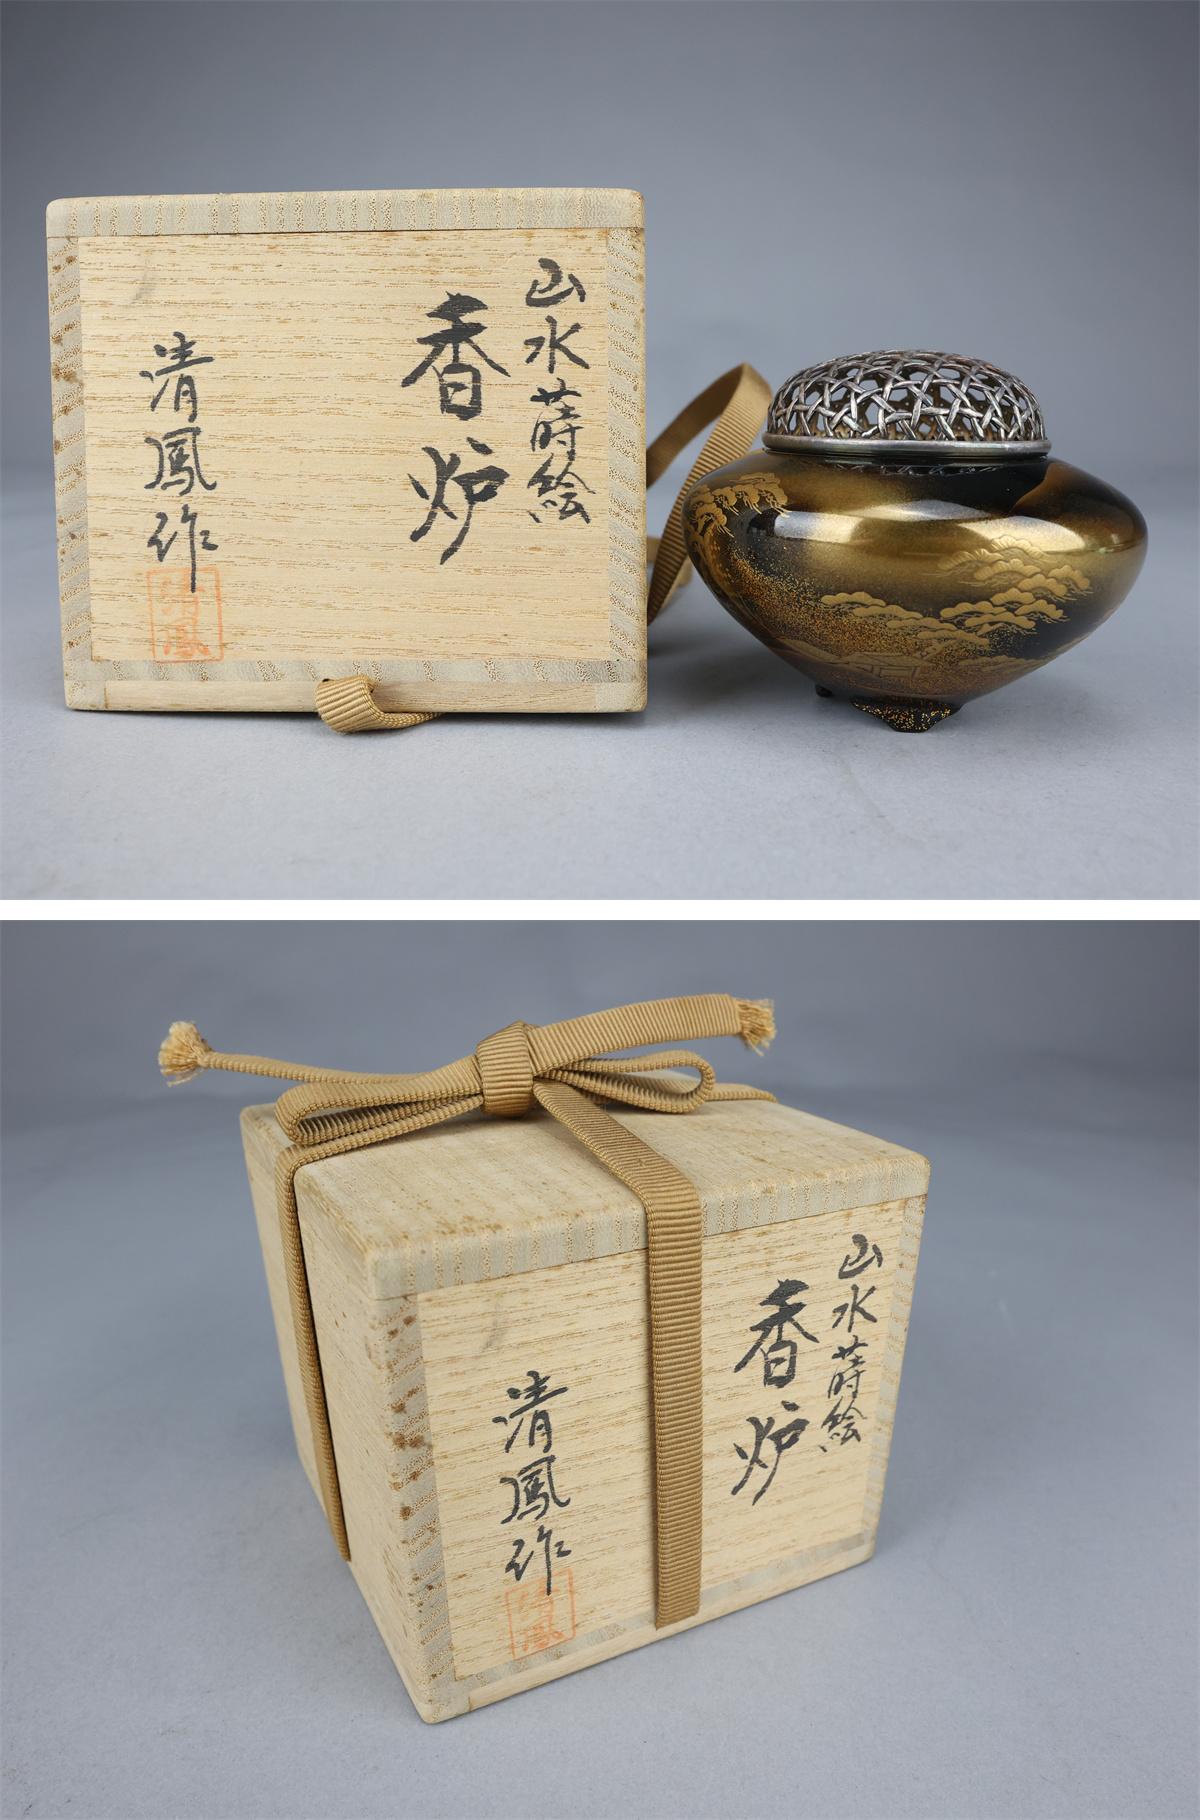 山水蒔絵
香炉
清鳳作
清鳳
山水蒔絵
香炉
清鳳作
清鳳